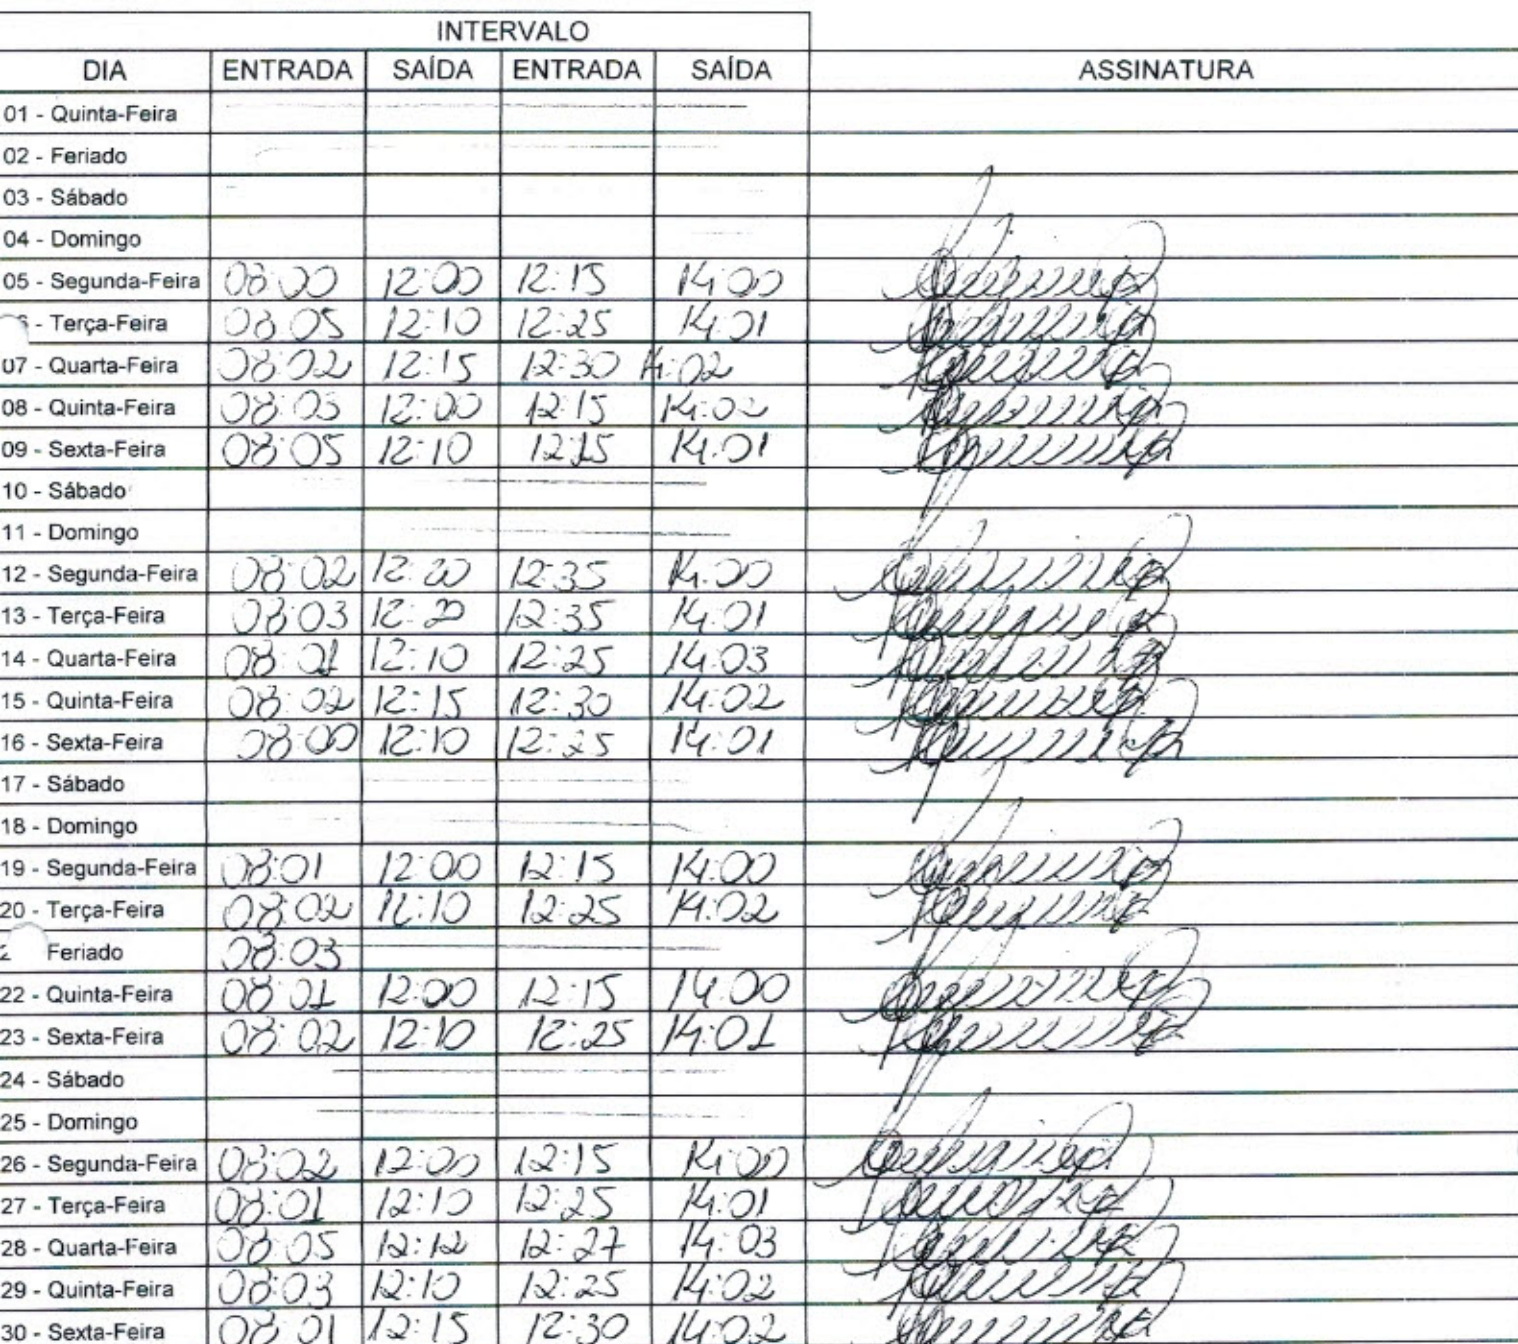 INTERVALO
DIA ENTRADA SAÍDA ENTRADA SAÍDA ASSINATURA
01 - Quinta-Feira
02 - Feriado
03 - Sábado
04 - Domingo
05 - Segunda-Feira 08:00 12:00 12:15 14:00
- Terça-Feira 08:05 12:10 12:25 14:01
07 - Quarta-Feira 08:02 12:15 12:30 14:02
08 - Quinta-Feira 08:03 12:00 12:15 14:02
09 - Sexta-Feira 08:05 12:10 14:01
10 - Sábado
11 - Domingo
12 - Segunda-Feira 08:02 12:20 12:35 14:00
13 - Terça-Feira 08:03 12:20 12:35 14:01
14 - Quarta-Feira 08:01 12:10 12:25 14:03
15 - Quinta-Feira 08:02 12:15 12:30 14:02
16 - Sexta-Feira 08:00 12:10 12:25 14:01
17 - Sábado
18 - Domingo
19 - Segunda-Feira 08:01 12:00 12:15 14:00
20 - Terça-Feira 08:02 12:10 12:25 14:02
Feriado 08:03
22 - Quinta-Feira 08:01 12:00 12:15 14:00
23 - Sexta-Feira 08:02 12:10 12:25 14:01
24 - Sábado
25 - Domingo
26 - Segunda-Feira 08:02 12:00 12:15 14:00
27 - Terça-Feira 08:01 12:10 12:25 14:01
28 - Quarta-Feira 08:05 12:12 12:27 14:03
29 - Quinta-Feira 08:03 12:10 12:25 14:02
30 - Sexta-Feira 08:01 12:15 12:30 14:02